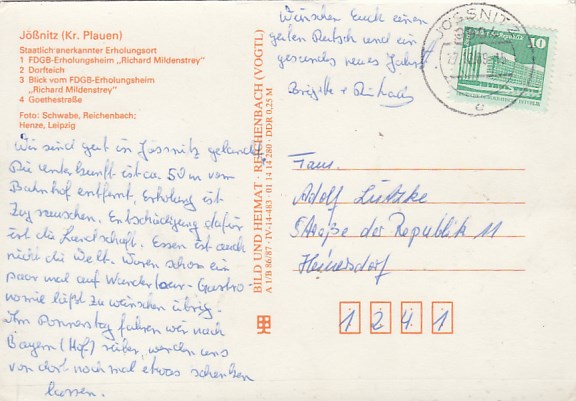 Jößnitz (Kr. Plauen)
Staatlich anerkannter Erholungsort
1 FDGB-Erholungsheim „Richard Mildenstrey"
2 Dorfteich
3 Blick vom FDGB-Erholungsheim
„Richard Mildenstrey"
4 Goethestraße
Foto: Schwabe, Reichenbach;
Henze, Leipzig
Wir sind gut in Jössnitz gelandet.
Die Unterkunft ist ca. 50 m vom
Bahnhof entfernt, Erholung ist
Zug rauschen. Entschädigung dafür
ist die Landschaft. Essen ist auch
nicht die Welt. Waren schon ein
paar mal auf Wander Gastro-
nomie läßt zu wünschen übrig.
Donnerstag fahren wir nach
Bayern (Hof) rüber, werden uns
von dort noch mal etwas schenken
lassen.
BILD UND HEIMAT · REICHENBACH (VOGTL)
A 1/B 86/87 · IV-14-483 · 01 14 14 280 · DDR 0,25 M
Wünschen Euch einen
guten Rutsch und ein
gesundes neues Jahr
Brigitte +
JÖSSNITZ
40
Fam.
Adolf Lutzke
Straße der Republik 11
Heinersdorf
1 2 4 1